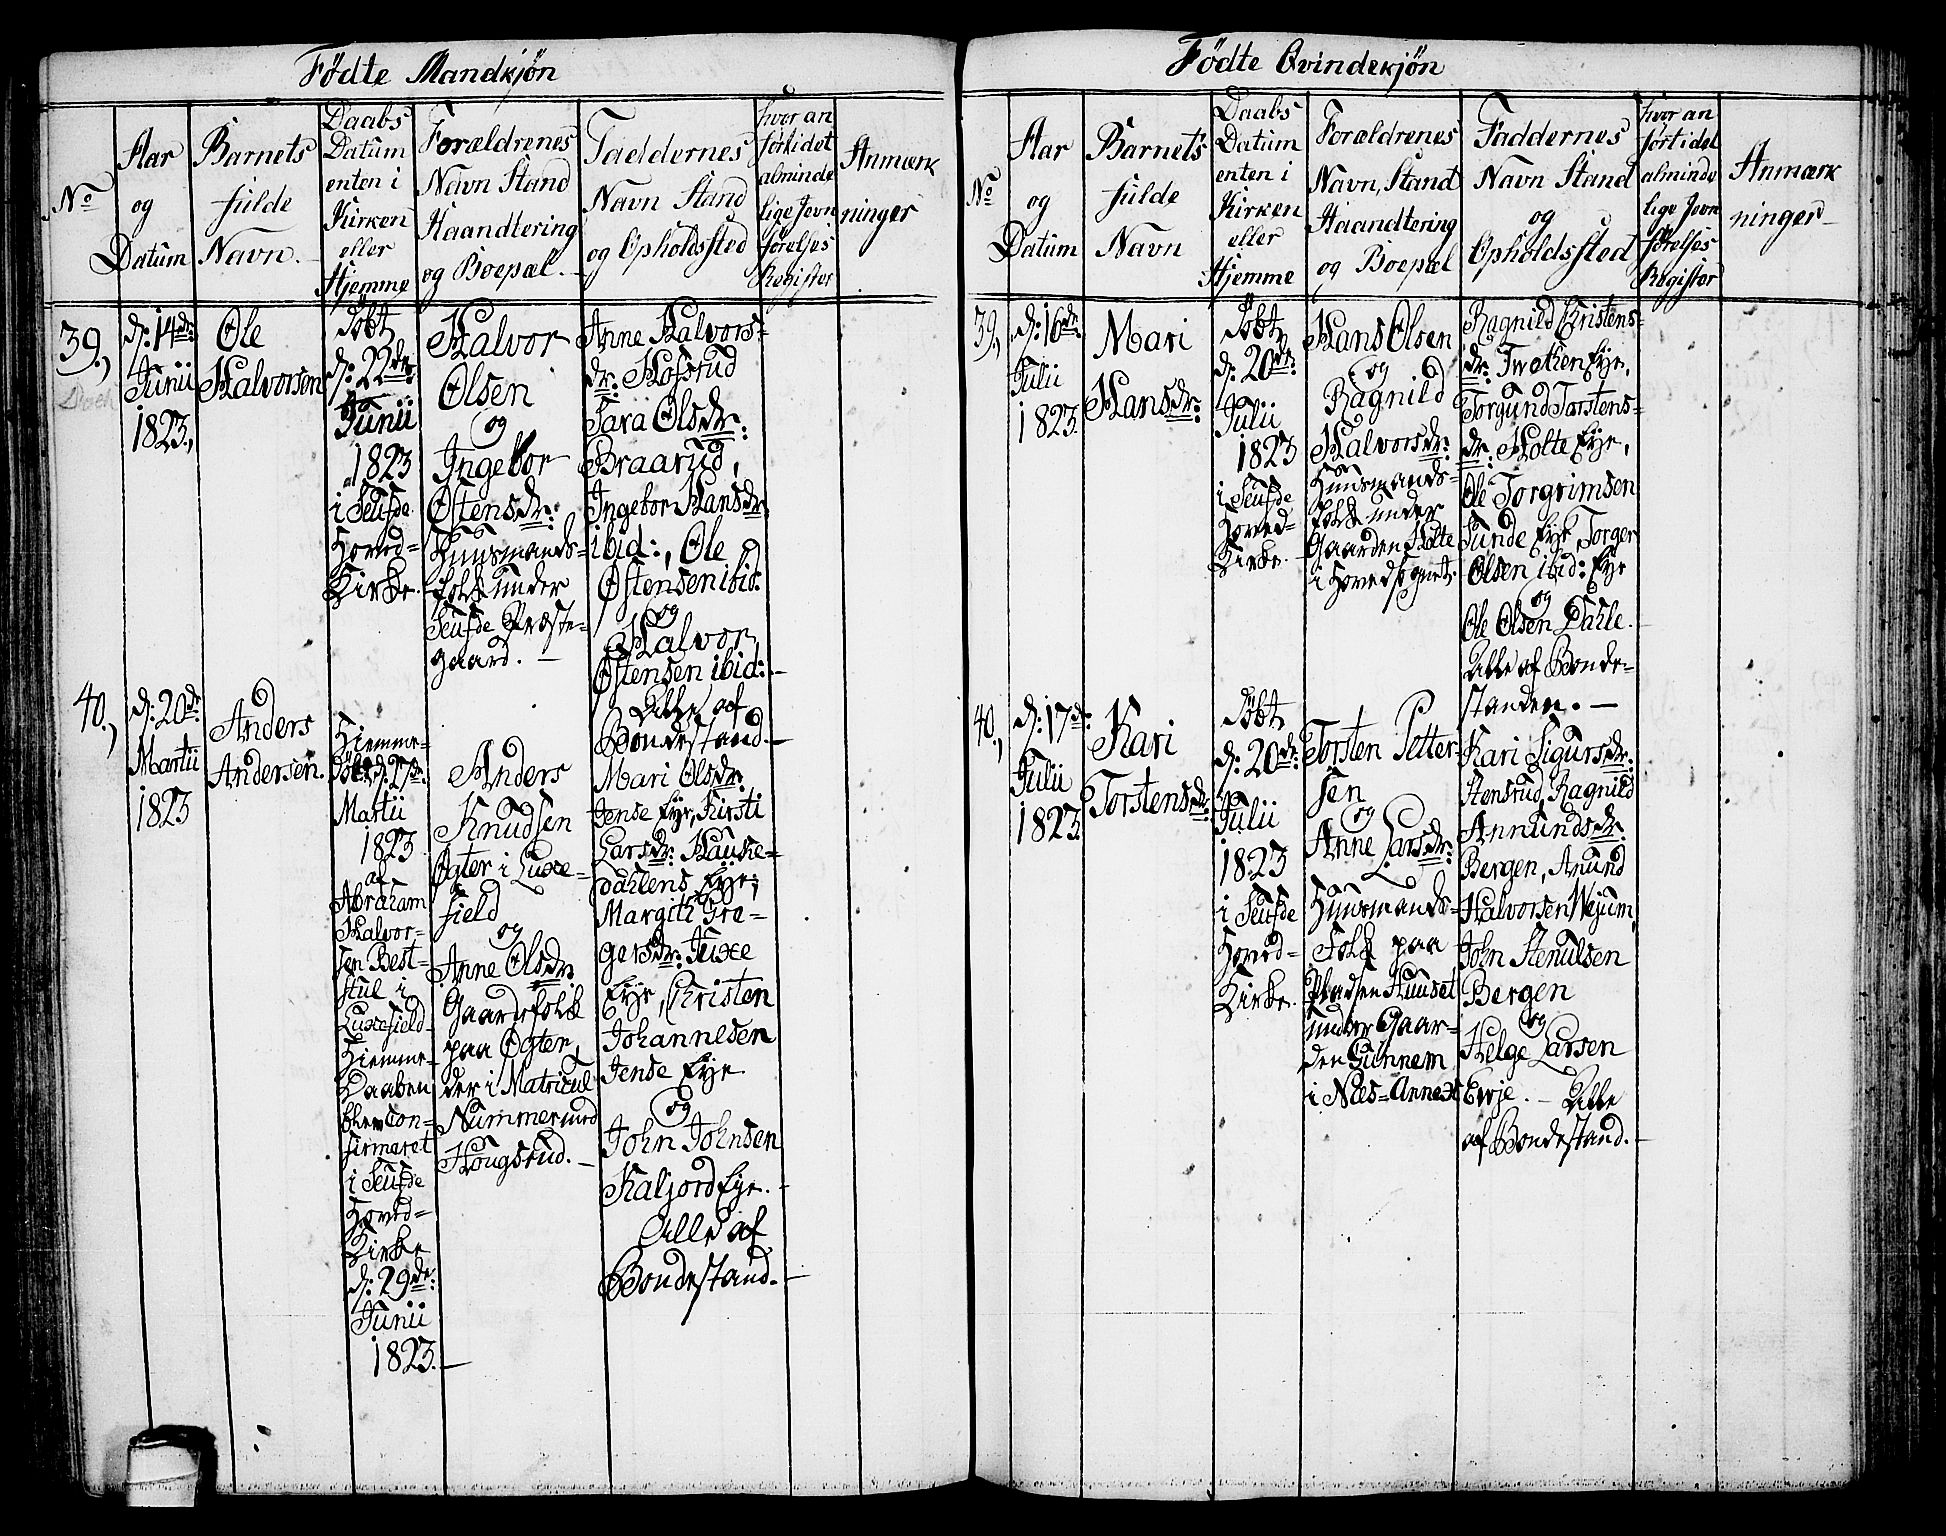 Fødte Mandkjøn
No
Aar
og
Datum
Barnets
fulde
Navn.
Daabs
Datum
enten i
Kirken
eller
Hjemme
Forældrenes
Navn Stand
Haandtering
og Boepæl.
Faddernes
Navn Stand
og Opholdssted
hvor an
ført i det
alminde
lige Jevn
førelses
Register
Anmærk
ninger
39.,
d: 14de
Junii
1823.,
Ole
Halvorsen
Døbt
d: 22de
Junii
1823
i Seufde
Hoved=
Kirke.
Halvor
Olsen
og
Ingebor
Østensdr:
Huusmands=
folk under
Seufde Præste=
gaard. —
Anne Halvors=
dr: Hofsrud
Sara Olsdr:
Braarud,
Ingebor Hansdr
ibid:, Ole
Østensen ibid:
og
Halvor
Østensen ibid: —
Alle af
Bondestand. —
40.,
d: 20de
Martii
1823
Anders
Andersen.
Hiemme=
døbt d: 27de:
Martii
1823
af
Abraham
Halvor=
sen Best=
stul i
Luxefield
Hiemme=
Daaben
blev con=
firmeret
i Seufde
Hoved=
Kirke
d: 29de:
Junii
1823. —
Anders
Knudsen
Øgter i Luxe=
field
og
Anne Olsdr
Gaardefolk
paa Øgter,
der i Matricul
Nummer med
Hougsrud. —
Mari Olsdr:
Jense Eye, Kirsti
Larsdr: Hauke=
dahlens Eye,
Margith Gre=
gersdr: Juxe
Eye, Christen
Johannesen
Jense Eye
og
John Johnsen
Kaljord Eye. —
Alle af
Bondestand. —
Fødte Qvindekjøn
No
Aar
og
Datum
Barnets
fulde
Navn
Daabs
Datum
enten i
Kirken
eller
Hjemme
Forældrenes
Navn, Stand
Haandtering
og Boepæl
Faddernes
Navn Stand
og
Opholdssted
hvor an
ført i det
alminde
lige Jevn
førelses
Register
Anmærk
ninger
39.,
d: 16de
Julii
1823.
Mari
Hansdr:
Døbt
d: 20de:
Julii
1823
i Seufde
Hoved=
Kirke. —
Hans Olsen
og
Ragnild
Halvorsdr:
Huusmands=
folk under
Gaarden Holte
i Hovedsognet.
Ragnild Kristens=
dr: Tweten Eye,
Torgund Torstens=
dr: Holte Eye,
Ole Torgrimsen
Sunde Eye, Torger
Olsen ibid: Eye
og
Ole Olsen Dahle. —
Alle af Bonde=
standen. —
40.,
d: 17de:
Julii
1823.
Kari
Torstensdr:
Døbt
d: 20de:
Julii
1823
i Seufde
Hoved=
Kirke.
Torsten Petter=
sen
og
Anne Larsdr:
Huusmands=
Folk paa
Pladsen Huuset
under Gaar=
den Gunnem
i Næs=Annex
Kari Sigursdr:
Stensrud, Ragnild
Annundsdr:
Bergen, Anund
Halvorsen Wejum,
John Stenulsen
Bergen
og
Helge Larsen
Ervje. — Alle
af Bondestand. —